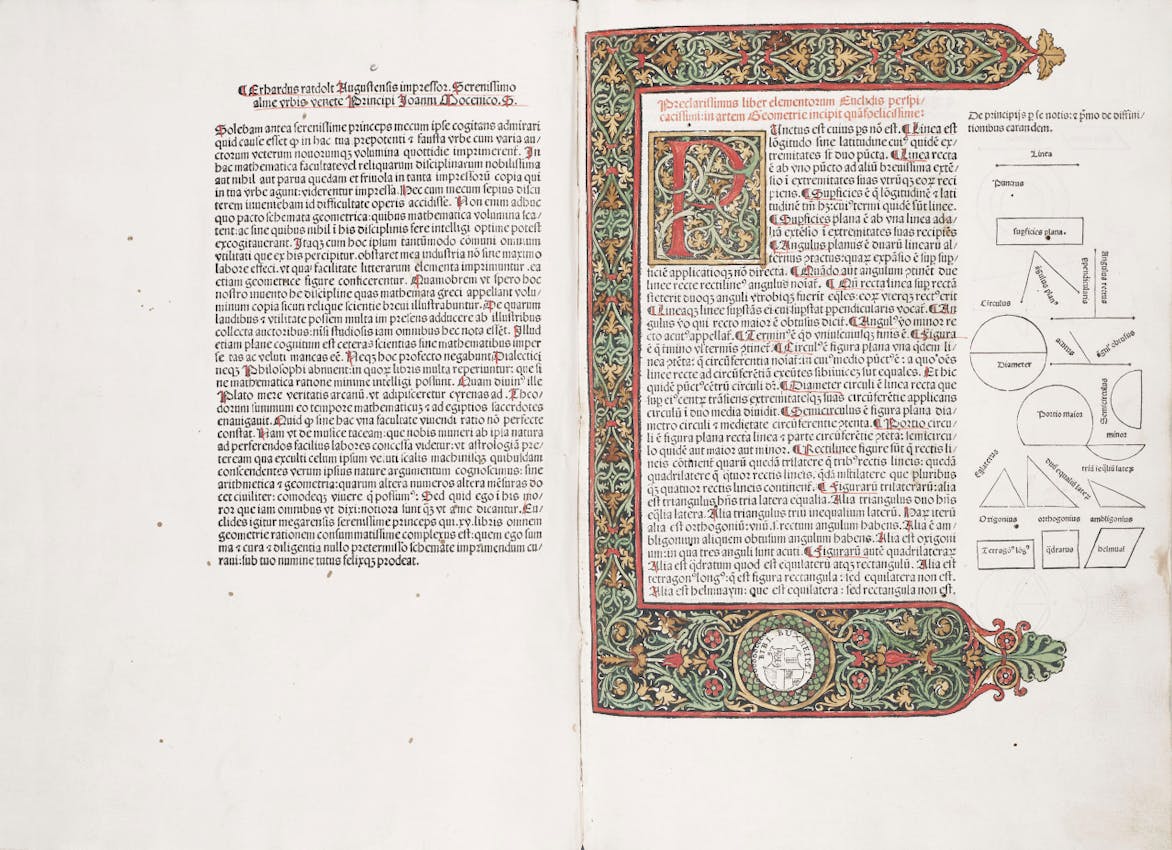 Erhardus ratdolt Augustensis impressor. Serenissimo
alme vrbis venete Principi Joanni Mocenico. S.
Solebam antea serenissime princeps mecum ipse cogitans admirari
quid cause esset ꝙ in hac tua prepotenti ⁊ fausta vrbe cum varia au-
ctorum veterum nouorumqꝫ volumina quottidie imprimerent̃. In
hac mathematica facultate vel reliquarum disciplinarum nobilissima
aut nihil aut parua quedam et friuola in tanta impressoꝝ copia qui
in tua vrbe agunt: viderentur impressa. Hec cum mecum sepius discu
terem inueniebam id difficultate operis accidisse. Non enim adhuc
quo pacto schemata geometrica: quibus mathematica volumina sca
tent: ac sine quibus nihil ĩ his disciplinis fere intelligi optime potest
excogitauerant. Itaqꝫ cum hoc ipsum tantũmodo cõmuni omnium
vtilitati que ex his percipitur. obstaret mea industria nõ sine maximo
labore effeci. vt qua facilitate litterarum elementa imprimuntur. ea
etiam geometrice figure conficerentur. Quamobrem vt spero hoc
nostro inuento he discipline quas mathemata greci appellant volu-
minum copia sicuti relique scientie breui illustrabuntur. De quarum
laudibus ⁊ vtilitate possem multa in presens adducere ab illustribus
collecta auctoribus: nisi studiosis iam omnibus hec nota essẽt. Illud
etiam plane cognitum est ceteras scientias sine mathematibus imper
fectas ac veluti mancas eẽ. Neqꝫ hoc profecto negabunt Dialectici
neqꝫ Philosophi abnuent: in quoꝝ libris multa reperiuntur: que si
ne mathematica ratione minime intelligi possunt. Quam diuinꝰ ille
Plato mere veritatis arcanũ. vt adipisceretur cyrenas ad. Theo-
dorum summum eo tempore mathematicũ ⁊ ad egiptios sacerdotes
enauigauit. Quid ꝙ sine hac vna facultate viuendi ratio nõ perfecte
constat. Nam vt de musice taceam: que nobis muneri ab ipsa natura
ad perferendos facilius labores concessa videtur: vt astrologiã pre-
teream qua exculti celum ipsum
conscendentes verum ipsius nature argumentum cognoscimus: sine
arithmetica ⁊ geometria: quarum altera numeros altera mẽsuras do
cet ciuiliter: comodeqꝫ viuere q̃ possumꝰ: Sed quid ego ĩ his mo-
ror que iam omnibus vt dixi: notiora sunt ꝙꝫ vt a me dicantur. Eu-
clides igitur megarensis serenissime princeps qui. xv. libris omnem
geometrie rationem consummatissime complexus est: quem ego sum
ma ⁊ cura ⁊ diligentia nullo pretermisso schemate imprimendum cu-
raui: sub tuo numine tutus felixqꝫ prodeat.
Preclarissimus liber elementorum Euclidis perspi/
cacissimi: in artem Geometrie incipit quãfoelicissime:
Punctus est cuius ps nõ est. Linea est
lõgitudo sine latitudine cuiꝰ quidẽ ex/
tremitates st duo pũcta. Linea recta
ẽ ab vno pũcto ad aliũ breuissima extẽ/
sio ĩ extremitates suas vtrũqꝫ eoꝝ reci
piens. Supficies ẽ q̃ lõgitudinẽ ⁊ lati
tudinẽ tm̃ hꝫ: cuiꝰ termi quidẽ sũt linee.
Supficies plana ẽ ab vna linea ad a/
liã extẽsio ĩ extremitates suas recipiẽs
Angulus planus ẽ duarũ linearũ al/
ternus ꝯtactus: quaꝝ expãsio ẽ sup sup/
ficiẽ applicatioqꝫ nõ directa. Quãdo aut angulum ꝯtinẽt due
linee recte rectilineꝰ angulus noiat̃. Qñ recta linea sup rectã
steterit duoqꝫ anguli vtrobiqꝫ fuerit eq̃les: eoꝝ vterqꝫ rectꝰ erit
Lineaqꝫ linee supstãs ei cui supstat ppendicularis vocat̃. An
gulus vo qui recto maior ẽ obtusus dicit̃. Angulꝰ vo minor re
cto acutꝰ appellat̃. Terminꝰ ẽ qd vniuscuiusqꝫ finis ẽ. Figura
ẽ q̃ tmino vl termis ꝯtinet̃. Circulꝰ ẽ figura plana vna qdem li/
nea ꝯtẽta: q̃ circũferentia noiat̃: in cuiꝰ medio pũctꝰ ẽ: a quo oẽs
linee recte ad circũferẽtiã exeũtes sibiinuicẽ sut equales. Et hic
quidẽ pũctꝰ cẽtrũ circuli dr̃. Diameter circuli ẽ linea recta que
sup eiꝰ centꝝ trãsiens extremitatesqꝫ suas circũferẽtie applicans
circulũ ĩ duo media diuidit. Semicirculus ẽ figura plana dia/
metro circuli ⁊ medietate circũferẽtie ꝯtenta. Portio circu/
li ẽ figura plana recta linea ⁊ parte circũferẽtie ꝯtẽta: semicircu/
lo quidẽ aut maior aut minor. Rectilinee figure sũt q̃ rectis li/
neis cõtinẽt quarũ quedã trilatere q̃ tribꝰ rectis lineis: quedã
quadrilatere q̃ quatuor rectis lineis. qdã mltilatere que pluribus
qꝫ quatuor rectis lineis continent̃. Figurarũ trilaterarũ: alia
est triangulus hñs tria latera equalia. Alia triangulus duo hñs
eq̃lia latera. Alia triangulus triũ inequalium laterũ. Haꝝ iterũ
alia est orthogoniũ: vnũ. s. rectum angulum habens. Alia ẽ am/
bligonium aliquem obtusum angulum habens. Alia est oxigoni
um: in qua tres anguli sunt acuti. Figurarũ autẽ quadrilateraꝝ
Alia est q̃dratum quod est equilaterũ atqꝫ rectangulũ. Alia est
tetragonꝰ longꝰ: q̃ est figura rectangula: sed equilatera non est.
Alia est helmuaym: que est equilatera: sed rectangula non est.
De principijs p se notis: ⁊ pmo de diffini/
tionibus earandem.
Linea
Punctus
supficies plana.
ãgulus planꝰ
ppendicularis
Angulus rectus
Circulus
acutus
ãgulꝰ obtusus
Diameter
Portio maior
Semicirculus
Portio minor
Eq̃laterus
duũ equaliũ lateꝝ
triũ ineq̃liũ lateꝝ
Oxigonius
orthogonius
ambligonius
Tetragonꝰ lõgꝰ
q̃dratus
helmuaī
BIBL. BUXHEIM: